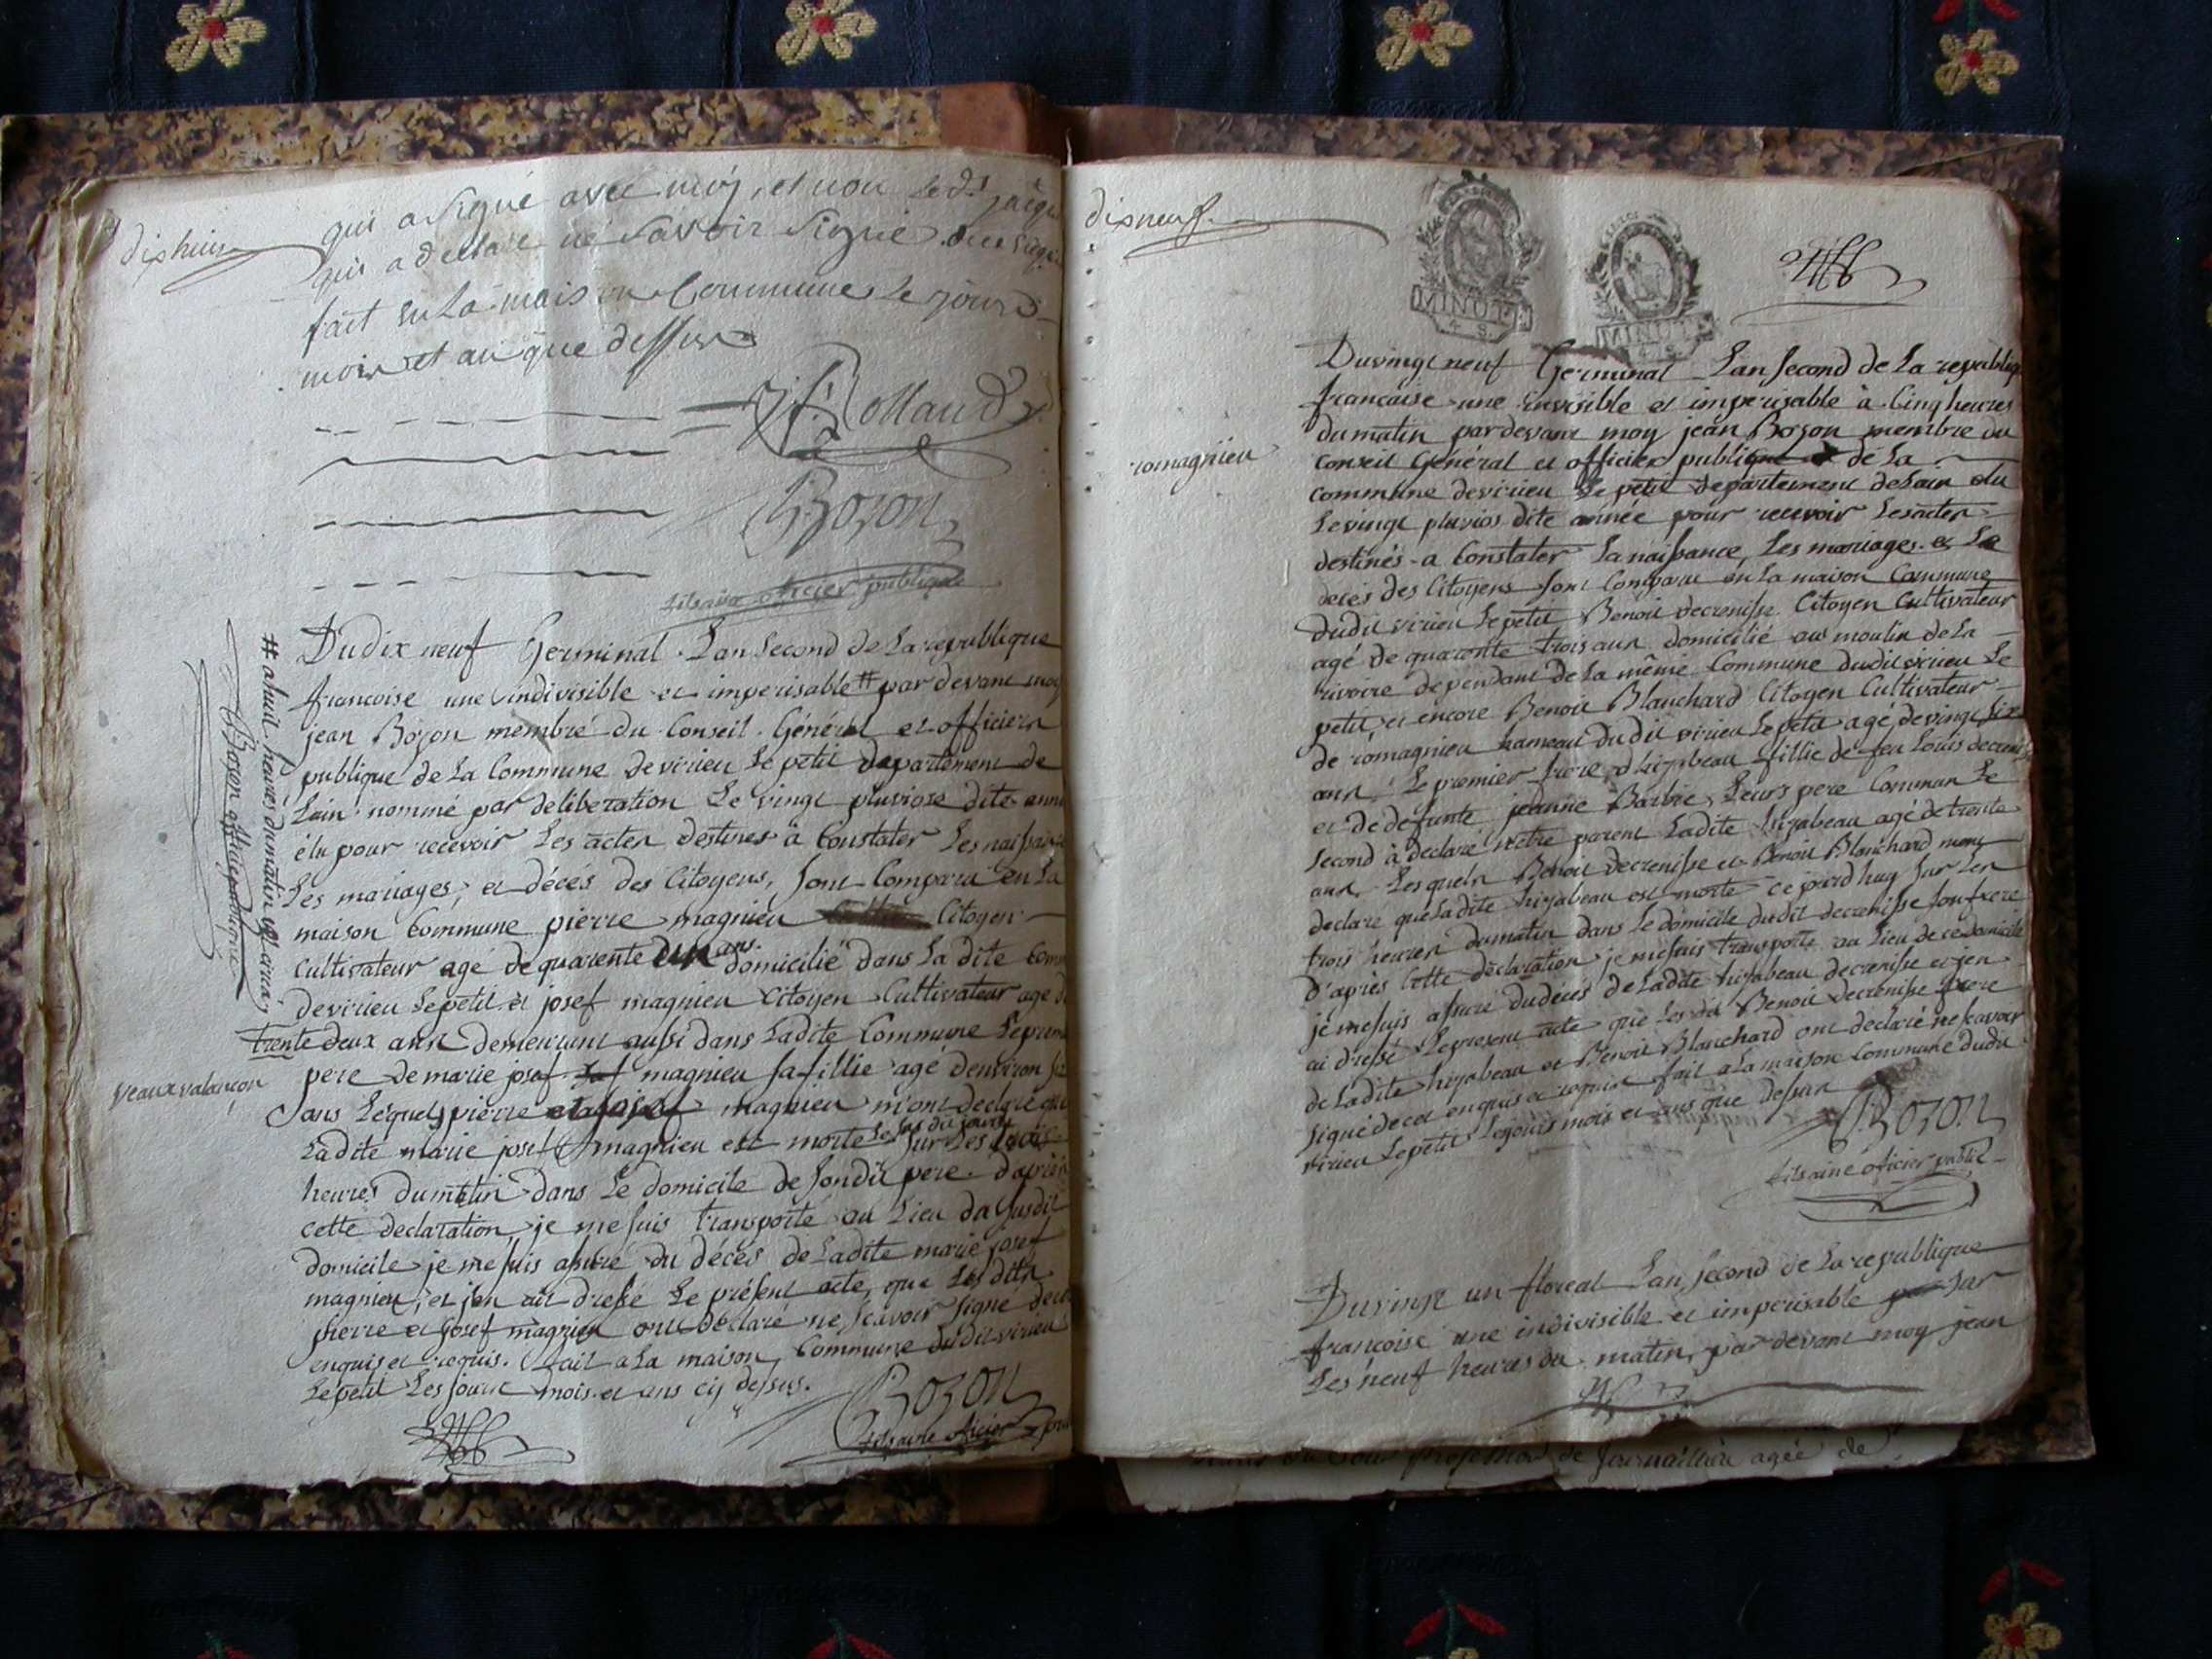 dix huit
qui a signé avec moy, et non le dt jacque
qui a declaré né savoir signé
fait en La maison Commune Le jour
mois et an que dessus
Rolland
Bozon
fils ainé oficier publique
Du dix neuf Germinal L'an second de La republique
francoise une indivisible et imperisable # par devant moy
jean Bozon membre du Conseil Général et officiers
publique de La Commune de virieu Le petit departement de
Lain nommé par deliberation Le vingt pluviose dite anné
élu pour recevoir Les actes destines à Constater Les naissance
Les mariages, et décés des Citoyens, sont Comparu en La
maison Commune pierre magnieu Citoyen
Cultivateur agé de quarente un ans domicilié dans La dite Comm
de virieu Le petit et josef magnieu Citoyen Cultivateur age de
trente deux ans demeurant aussi dans Ladite Commune Le premier
pere de marie josef magnieu sa fillie agé denviron
ans Lequel pierre et josef magnieu m'ont declaré que
Ladite marie josef magnieu est morte sur Les
heures du matin dans Le domicile de son dit pere. d'après
cette declaration, je me suis transporté au Lieu da susdit
domicile je me suis assuré du décès de Ladite marie josef
magnieu, et j'en ait dressé Le présent acte, que Les dits
pierre et josef magnieu ont déclaré ne scavoir signé de ce
enquis et requis. fait a La maison Commune dudit virieu
Le petit Les jours mois et ans cy dessus.
Bozon
fils ainé oficier pu
# a huit heures du matin
Bozon officie publique
Veaux valançon
dix neuf
MINUT
4 S
MINUT
4 S
romagnieu
Du vingt neuf Germinal L'an second de La republiq
francaise une invisible et imperisable à Cinq heures
du matin par devant moy jean Bozon membre du
Conseil Général et officier publique de La
Commune de virieu Le petit departement de Lain elu
Le vingt pluvios dite année pour recevoir Les actes
destinés a Constater La naissance, Les mariages et Le
deces des Citoyens sont Comparu en La maison Commune
dudit virieu Le petit Benoit decrenisse Citoyen Cultivateur
agé de quarente trois ans domicilié au moulin de La
rivoire dependant de La même Commune dudit virieu Le
petit, et encore Benoit Blanchard Citoyen Cultivateur
de romagnieu hameau dudit virieu Le petit agé de vingt six
ans, Le premier frere, d'hizabeau fillie de feu Louis decreni
et de defunte jeanne Barbie, Leurs pere Commun Le
second à declaré n'etre parent Ladite hizabeau agé de trente
ans, Lesquels Benoit decrenisse et Benoit Blanchard mont
declare que Ladite hizabeau est morte ce jourd huy sur Les
trois heures du matin dans Le domicile dudit decrenisse son frere
d'après Cette déclaration je me suis transporté au Lieu de ce domicile
je me suis assuré du déces de Ladite hizabeau decrenisse et j'en
ai dressé Le present acte que Les dit Benoit decrenisse frere
de Ladite hizabeau et Benoit Blanchard ont declaré ne scavoir
signé de ce enquis et requis fait a La maison Commune dudit
virieu Le petit Les jours mois et ans que dessus
Bozon
fils ainé oficier public
Du vingt un floreal L'an second de La republique
francoise une indivisible et imperisable sur
Les neuf heures du matin, par devant moy jean
de journaliere agée de